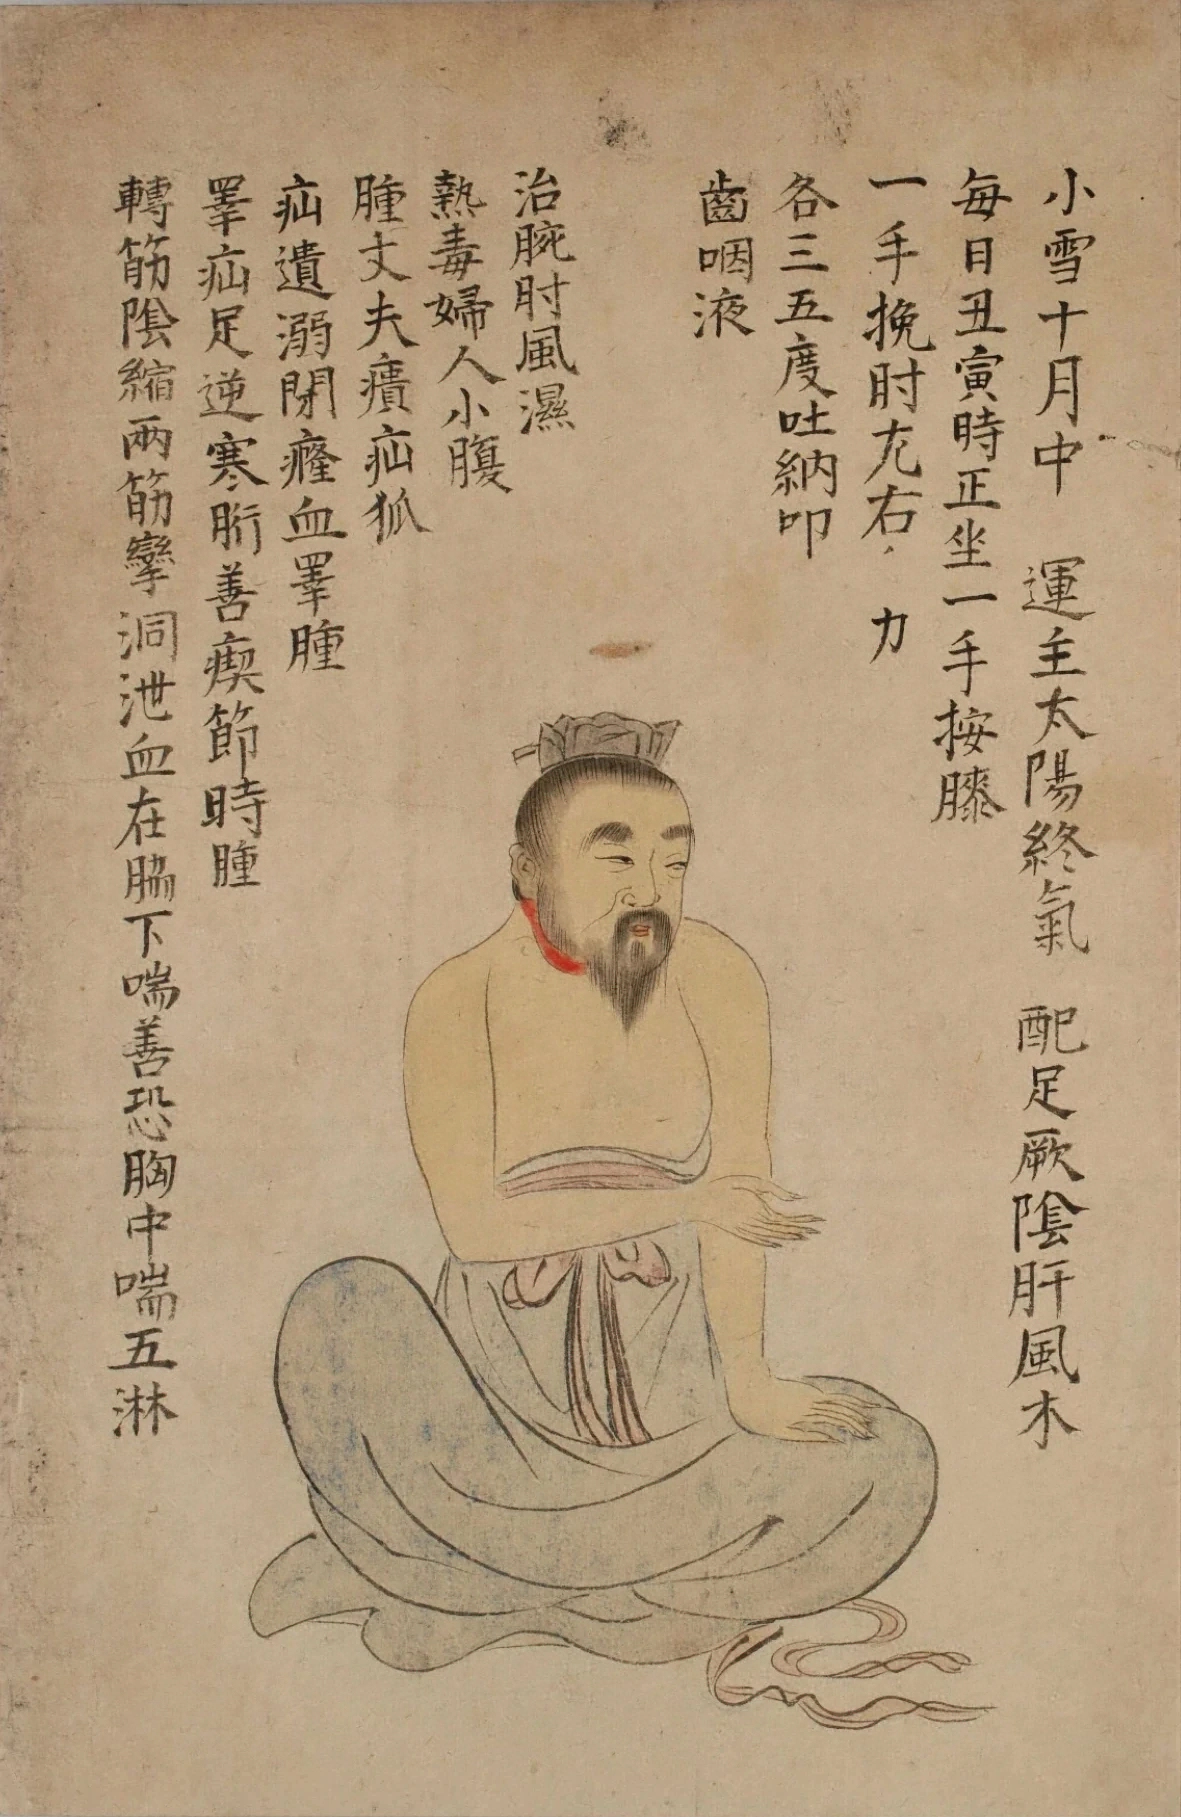 小雪十月中　運主太陽終氣　配足厥陰肝風木
每日丑寅時正坐一手按膝
一手挽肘左右　力
各三五度吐納叩
齒咽液
治腕肘風濕
熱毒婦人小腹
腫丈夫㿉疝狐
疝遺溺閉癃血睪腫
睪疝足逆寒胻善瘈節時腫
轉筋陰縮兩筋攣洞泄血在脇下喘善恐胸中喘五淋